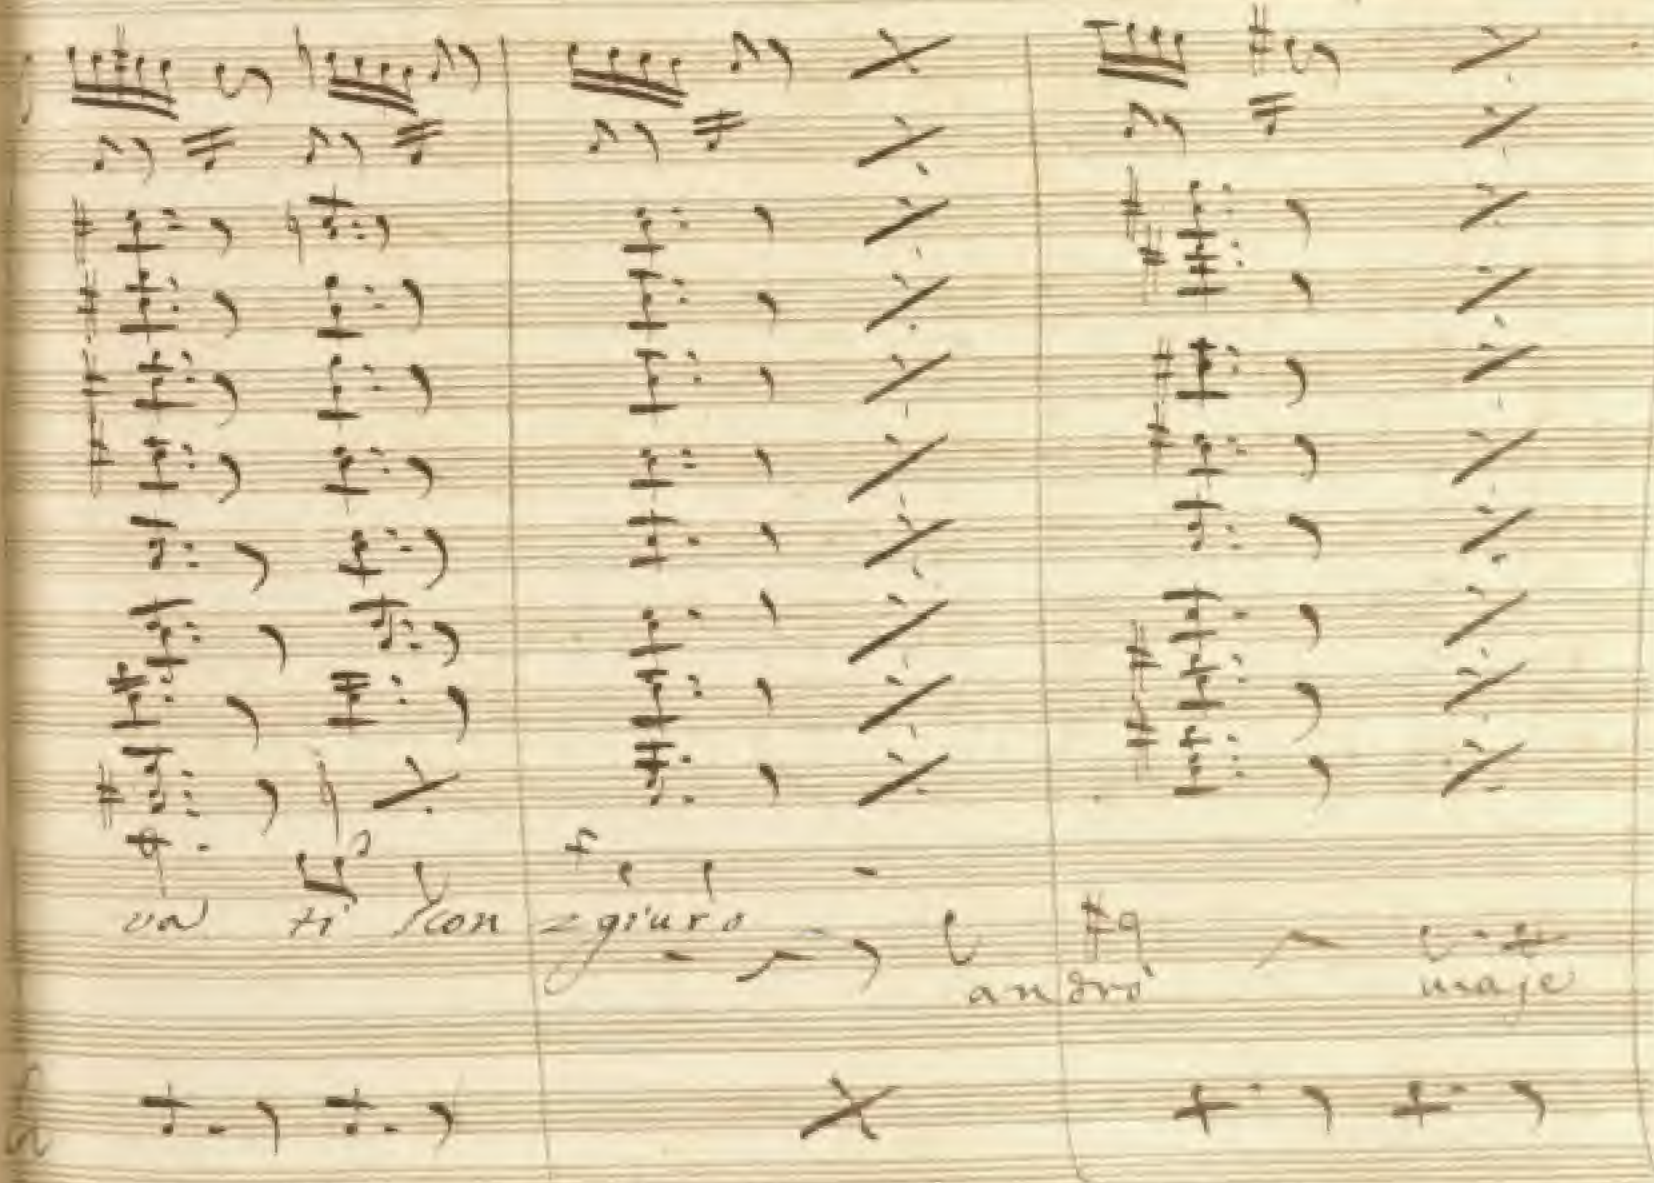 va ti scon = giuro
andrò maje